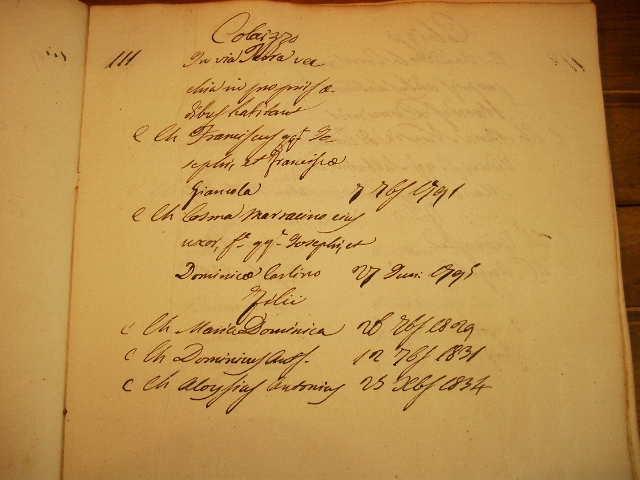 Colaizzo
111 In via Terra vec
chia in propriis æ
dibus habitant
C Ch Franciscus qq.m Jo=
sephi, et Franciscæ
Giancola 7 7bs 1791
C Ch Cosma Marracino ejus
uxor, f.a qq.m Josephi, et
Dominicæ Carlino 27 Juni 1795
Filii
C Ch Maria Dominica 28 7bs 1829
C Ch Dominicus Ant.s 12 7bs 1831
C Ch Aloysius Antonius 25 Xbs 1834